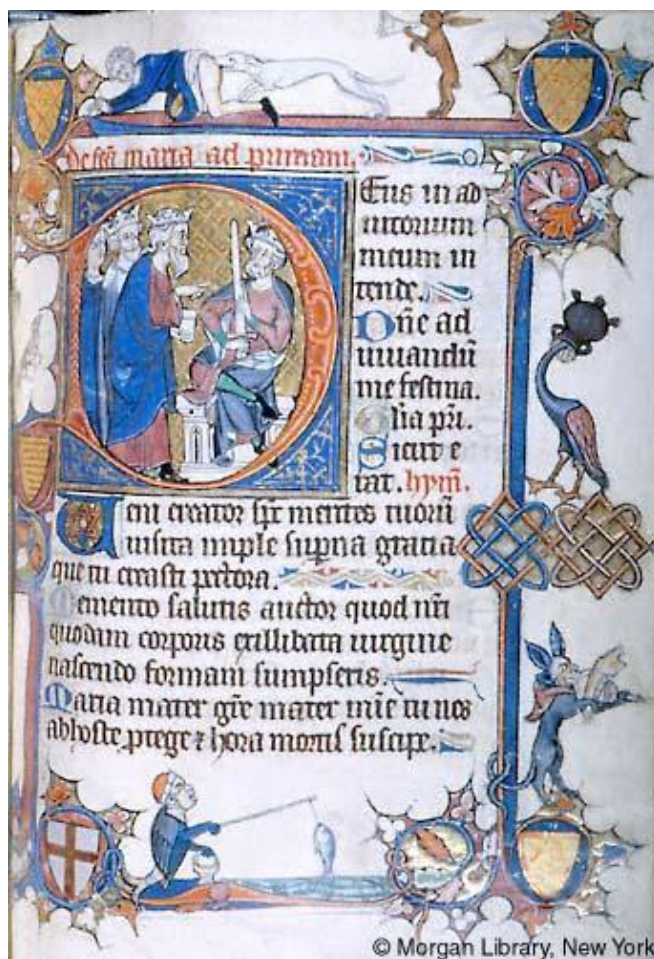 De sca maria ad primam.
Eus in ad
iutorium
meum in
tende.
Dne ad
iuuandu
me festina.
Glia pri.
Sicut e
rat. hym.
Ueni creator spc mentes tuoru
uisita imple supna gratia
que tu creasti pectora.
Memento salutis auctor quod nri
quodam corporis exillibata uirgine
nascendo formam sumpseris.
Maria mater gre mater mie tu nos
ab hoste ptege ⁊ hora mortis suscipe.
© Morgan Library, New York